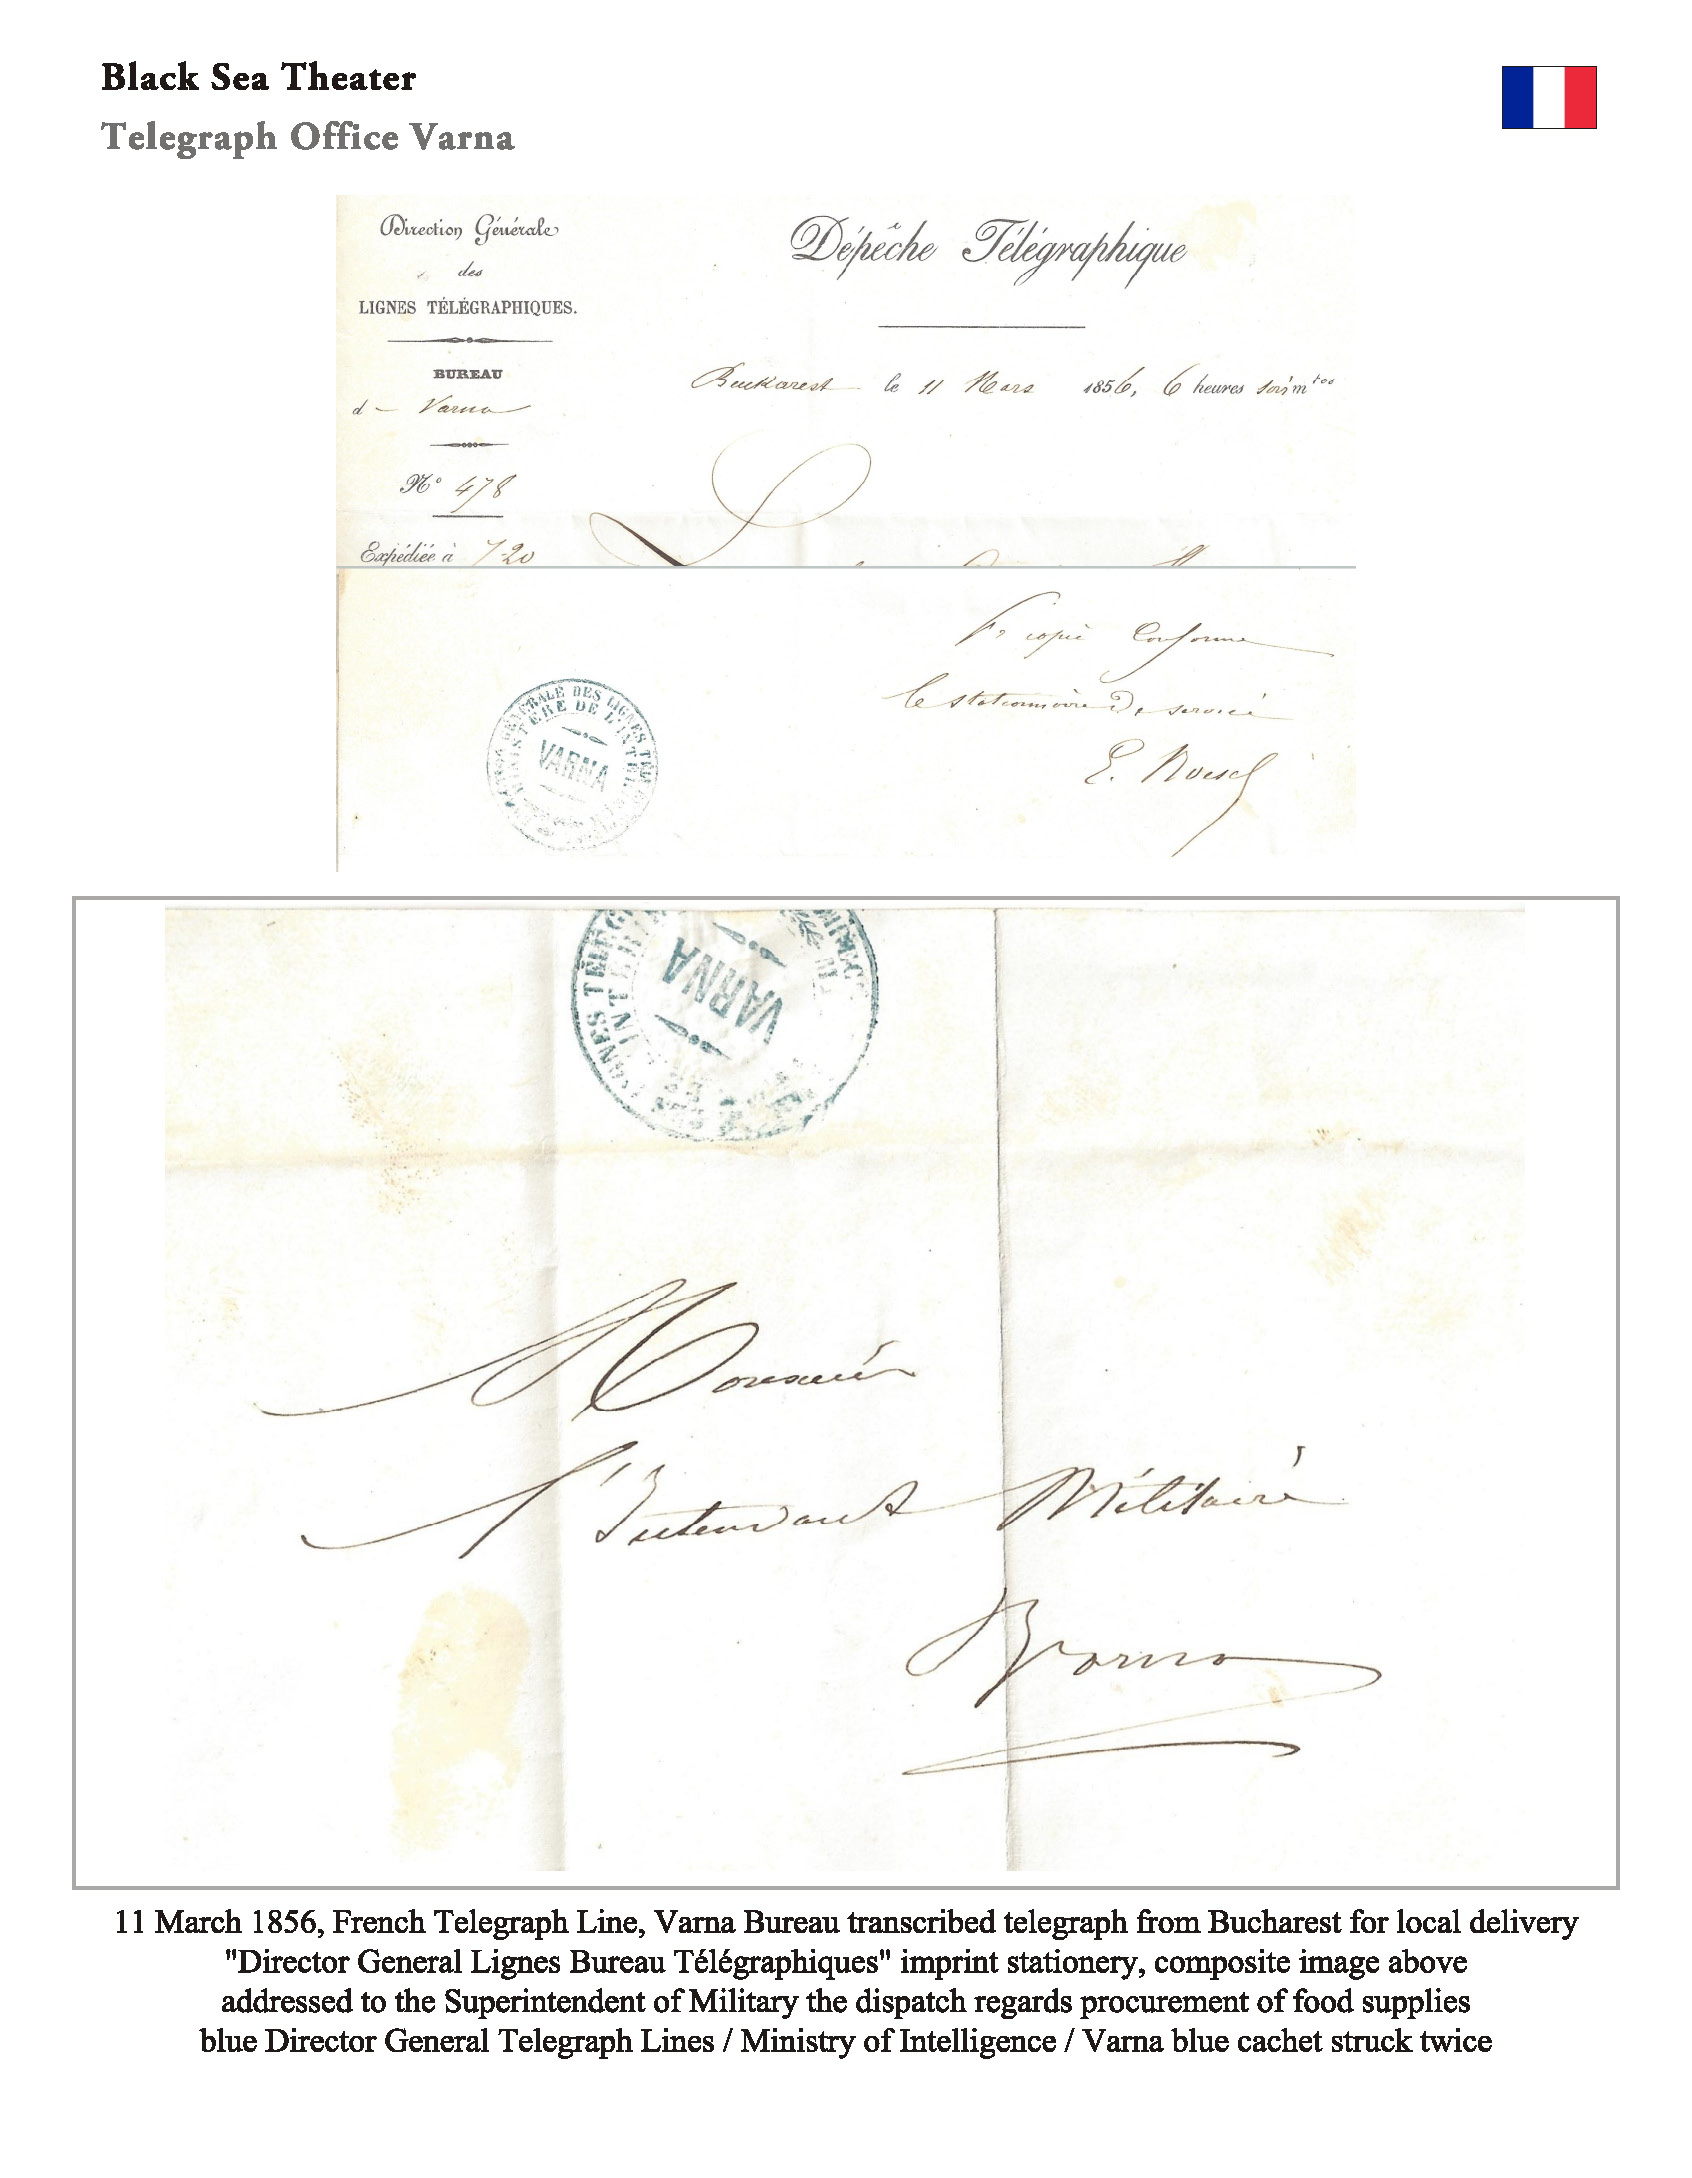 Black Sea Theater
Telegraph Office Varna
Direction Générale
des
LIGNES TÉLÉGRAPHIQUES.
BUREAU
d Varna
N° 478
Expédiée à 7-20
Dépêche Télégraphique
Buckarest le 11 Mars 1856, 6 heures soir mtes
copie Conforme
le stationnaire De service
E.
GÉNÉRALE DES LIGNES
MINISTÈRE DE L'INTÉRIEUR
VARNA
LIGNES TÉLÉG
INTER
VARNA
Monsieur
l'Intendant Militaire
Varna
11 March 1856, French Telegraph Line, Varna Bureau transcribed telegraph from Bucharest for local delivery
"Director General Lignes Bureau Télégraphiques" imprint stationery, composite image above
addressed to the Superintendent of Military the dispatch regards procurement of food supplies
blue Director General Telegraph Lines / Ministry of Intelligence / Varna blue cachet struck twice